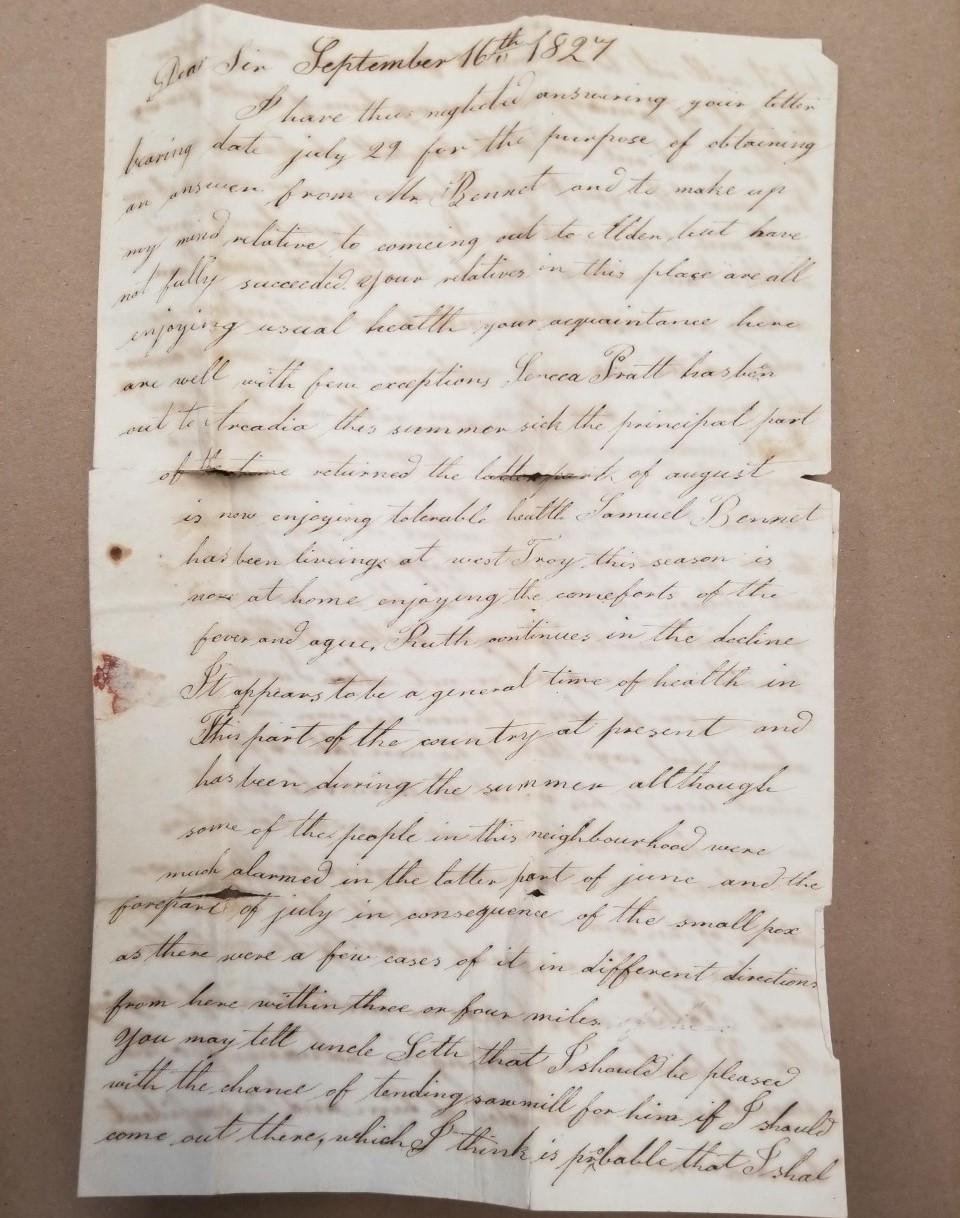 Dear Sir September 16th 1827
I have thus neglected answering your letter
bearing date july 29 for the purpose of obtaining
an answer from Mr Bennet and to make up
my mind relative to comeing out to Alden but have
not fully succeeded. Your relatives in this place are all
enjoying usual health your acquaintance here
are well with few exceptions Seneca Pratt has ben
out to Arcadia this summer sick the principal part
of the time returned the latter part of august
is now enjoying tolerable health Samuel Bennet
has been liveing at west Troy this season is
now at home enjoying the comeforts of the
fever and ague, Ruth continues in the decline
It appears to be a general time of health in
This part of the country at present and
has been during the summer allthough
some of the people in this neighbourhood were
much alarmed in the latter part of june and the
forepart of july in consequence of the small pox
as there were a few cases of it in different directions
from here within three or four miles
You may tell uncle Seth that I should be pleased
with the chance of tending sawmill for him if I should
come out there, which I think is probable that I shal